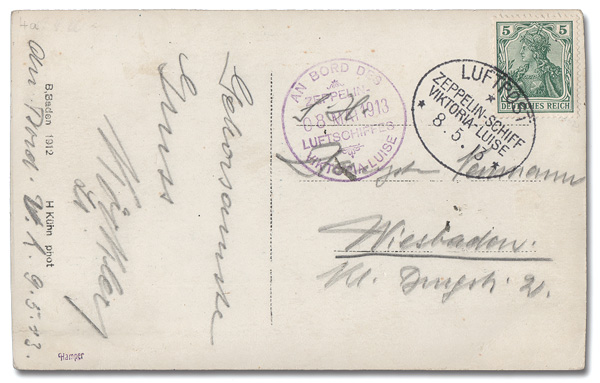 Gehorsamste
Gruss
An Bord V. L. 9.5.13.
B.Baden 1912
H Kühn phot
Stamper
AN BORD DES
ZEPPELIN-
08 MAI 1913
LUFTSCHIFFES
VIKTORIA-LUISE
LUFTPOST
ZEPPELIN-SCHIFF
VIKTORIA-LUISE
* 8.5.13 *
5 5
DEUTSCHES REICH
Neumann
Wiesbaden.
Kl. Burgstr. 2.